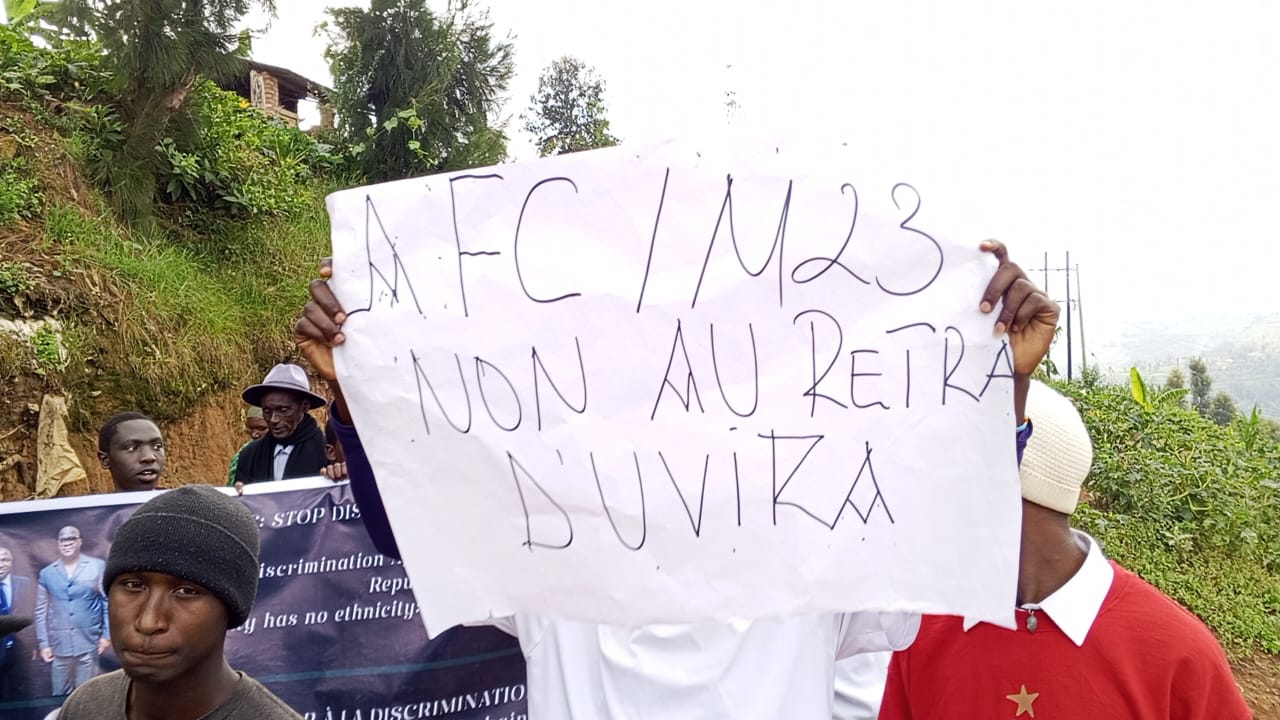 AFC/M23
NON AU RETRA
D'UVIRA
: STOP DIS
iscrimination
Repu
y has no ethnicity
À LA DISCRIMINATIO